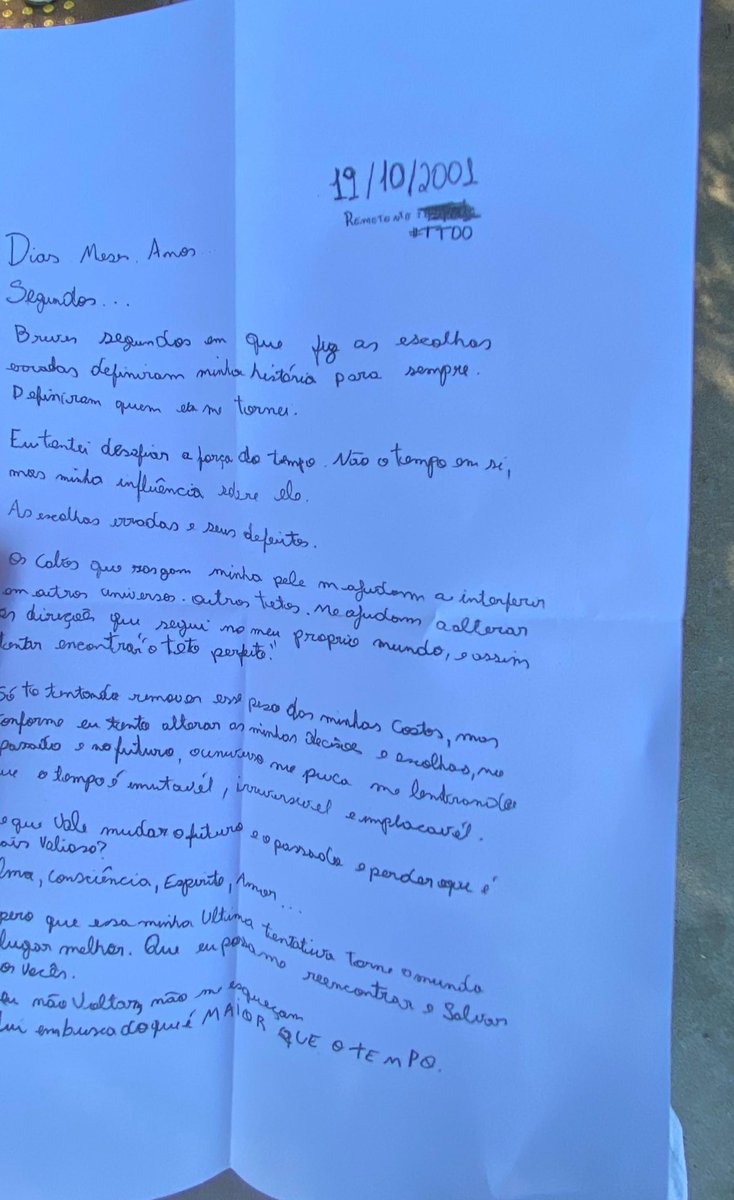 19/10/2001
REMOTO NO
#TTDO
Dias Meses Anos
Segundos...
Breves segundos em que fiz as escolhas
erradas definiram minha história para sempre.
Definiram quem eu me tornei.
Eu tentei desafiar a força do tempo. Não o tempo em si,
mas minha influência sobre ele.
As escolhas erradas e seus defeitos.
Os cabos que rasgam minha pele m ajudam a interferir
em outros universos. outros tetos. Me ajudam a alterar
as direções que segui no meu proprio mundo, e assim
tentar encontrar "o teto perfeito!"
Só to tentando remover esse peso das minhas costas, mas
conforme eu tento alterar as minhas decisões e escolhas, no
passado e no futuro, o universo me puxa me lembrando
ue o tempo é imutavél, irreversível e implacavél.
o que vale mudar o futuro e o passado e perder o que é
ais valioso?
lma, Consciência, Espirito, Amor...
pero que essa minha Ultima tentativa torne o mundo
lugar melhor. Que eu possa me reencontrar e Salvar
os vocês.
eu não Voltar, não me esqueçam
Fui em busca do que é MAIOR QUE O TEMPO.